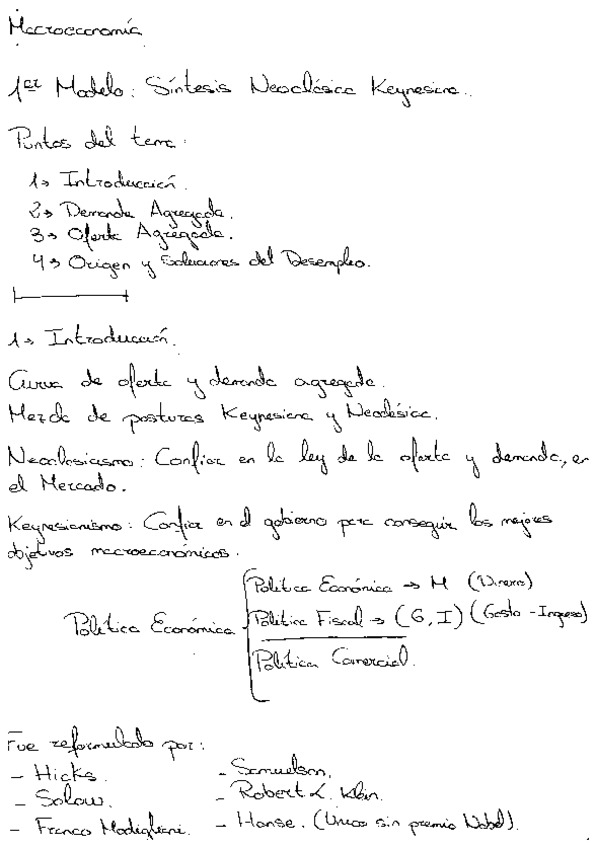 Macroeconomía
1er Modelo: Síntesis Neoclásica Keynesiana.
Puntos del tema:
1→ Introducción.
2→ Demanda Agregada.
3→ Oferta Agregada.
4→ Origen y Soluciones del Desempleo.
1→ Introducción.
Curva de oferta y demanda agregada.
Mezcla de posturas Keynesiana y Neoclásica.
Neoclasicismo: Confiar en la ley de la oferta y demanda, en
el Mercado.
Keynesianismo: Confiar en el gobierno para conseguir los mejores
objetivos macroeconómicos.
Política Económica → M (Dinero)
Política Económica Política Fiscal → (G, I) (Gasto - Ingreso)
Política Comercial.
Fue reformulado por:
- Hicks. - Samuelson.
- Solow. - Robert L. Klein.
- Franco Modigliani. - Hanse. (Unico sin premio Nobel).